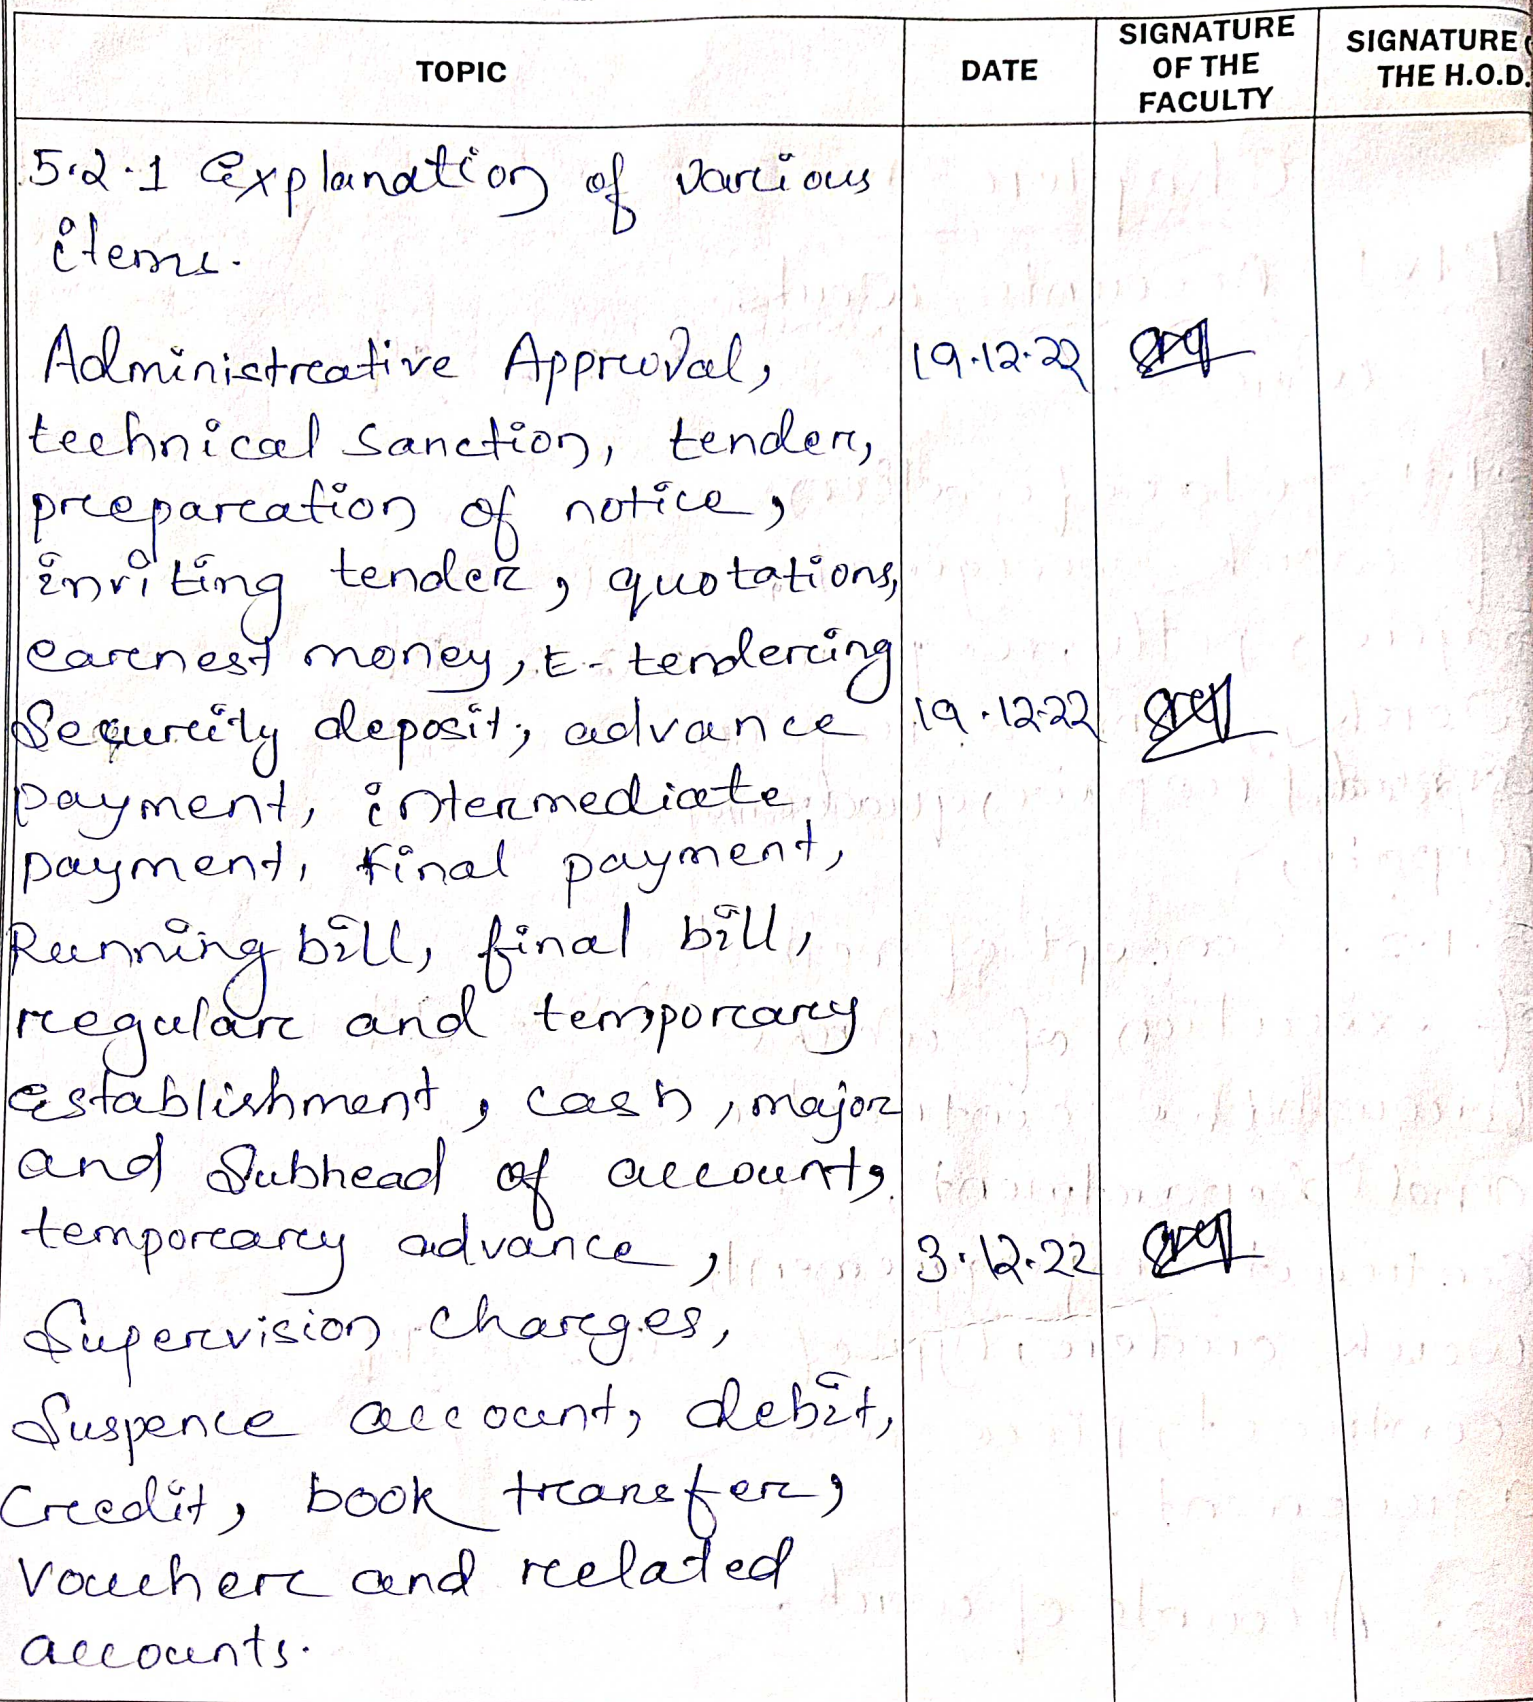 TOPIC DATE SIGNATURE OF THE FACULTY SIGNATURE THE H.O.D.
5.2.1 Explanation of various
items.
Administrative Approval, 19.12.22
technical sanction, tender,
preparation of notice,
inviting tender, quotations,
earnest money, E-tendering
Security deposit, advance 19.12.22
payment, intermediate
payment, final payment,
Running bill, final bill,
regular and temporary
establishment, cash, major
and Subhead of account,
temporary advance, 3.12.22
Supervision charges,
Suspence account, debit,
Credit, book transfer,
Voucher and related
accounts.